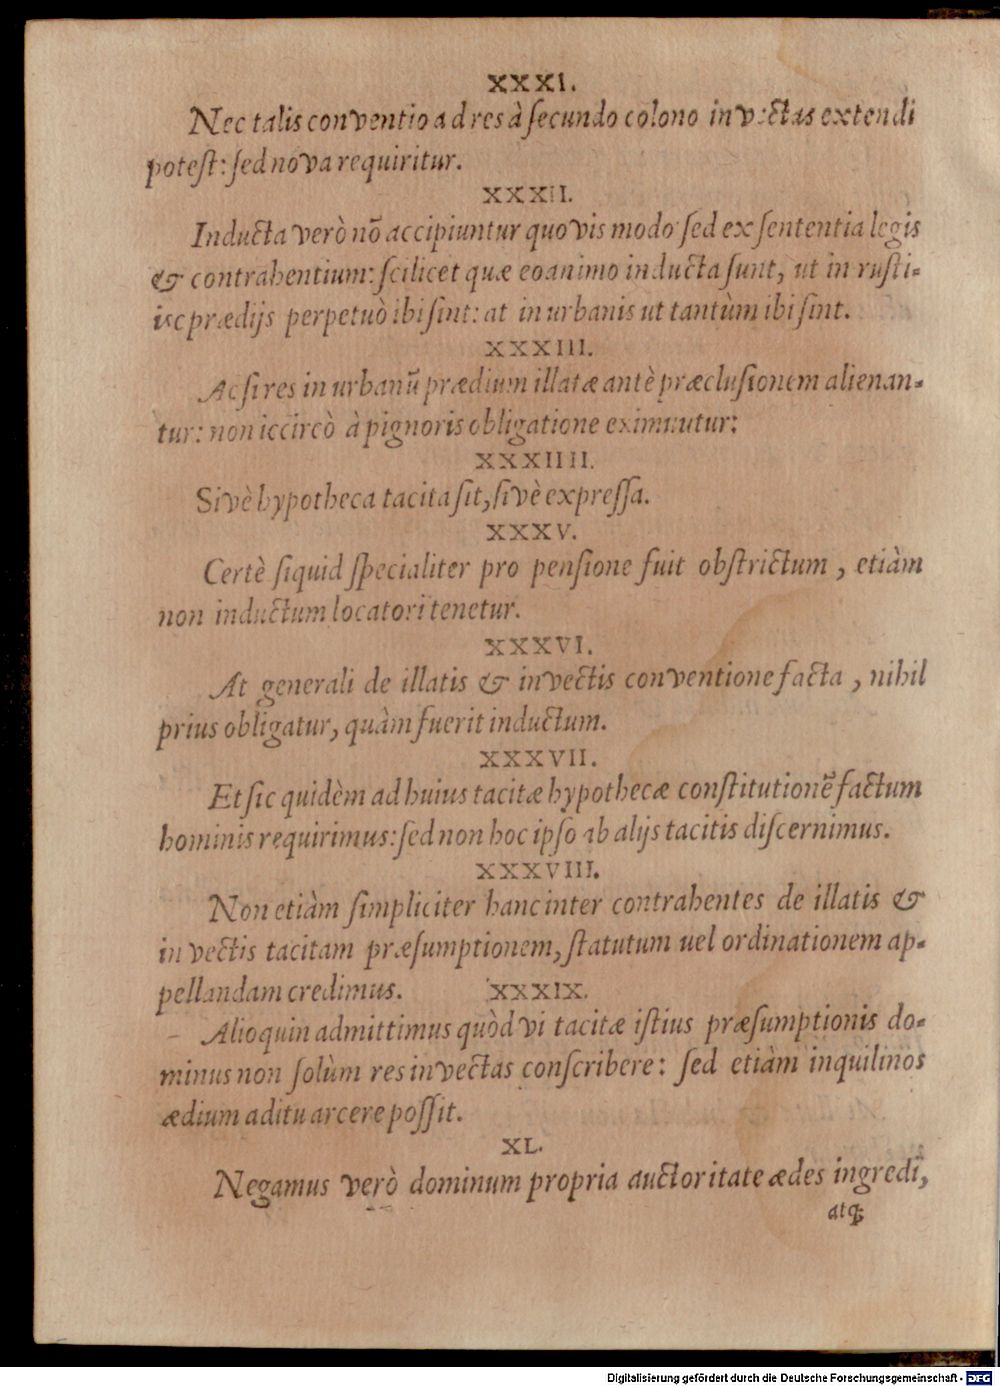 XXXI.
Nec talis conventio ad res à ſecundo colono inv:ctas extendi
poteſt: ſed nova requiritur.
XXXII.
Inducta verò nō accipiuntur quovis modo ſed ex ſententia legis
& contrahentium: ſcilicet quæ eo animo inducta ſunt, ut in ruſti-
isc prædijs perpetuò ibi ſint: at in urbanis ut tantùm ibi ſint.
XXXIII.
Ac ſi res in urbanū prædium illatæ antè præcluſionem alienan-
tur: non iccircò à pignoris obligatione eximuutur:
XXXIIII.
Sivè hypotheca tacita ſit, ſivè expreſſa.
XXXV.
Certè ſiquid ſpecialiter pro penſione fuit obſtrictum, etiàm
non inductum locatori tenetur.
XXXVI.
At generali de illatis & invectis conventione facta, nihil
prius obligatur, quàm fuerit inductum.
XXXVII.
Et ſic quidèm ad huius tacitæ hypothecæ conſtitutionē factum
hominis requirimus: ſed non hoc ipſo ab alijs tacitis diſcernimus.
XXXVIII.
Non etiàm ſimpliciter hanc inter contrahentes de illatis &
invectis tacitam præſumptionem, ſtatutum uel ordinationem ap-
pellandam credimus.
XXXIX.
Alioquin admittimus quòd vi tacitæ iſtius præſumptionis do-
minus non ſolùm res invectas conſcribere: ſed etiàm inquilinos
ædium aditu arcere poſſit.
XL.
Negamus verò dominum propria auctoritate ædes ingredi,
atq;
Digitalisierung gefördert durch die Deutsche Forschungsgemeinschaft - DFG